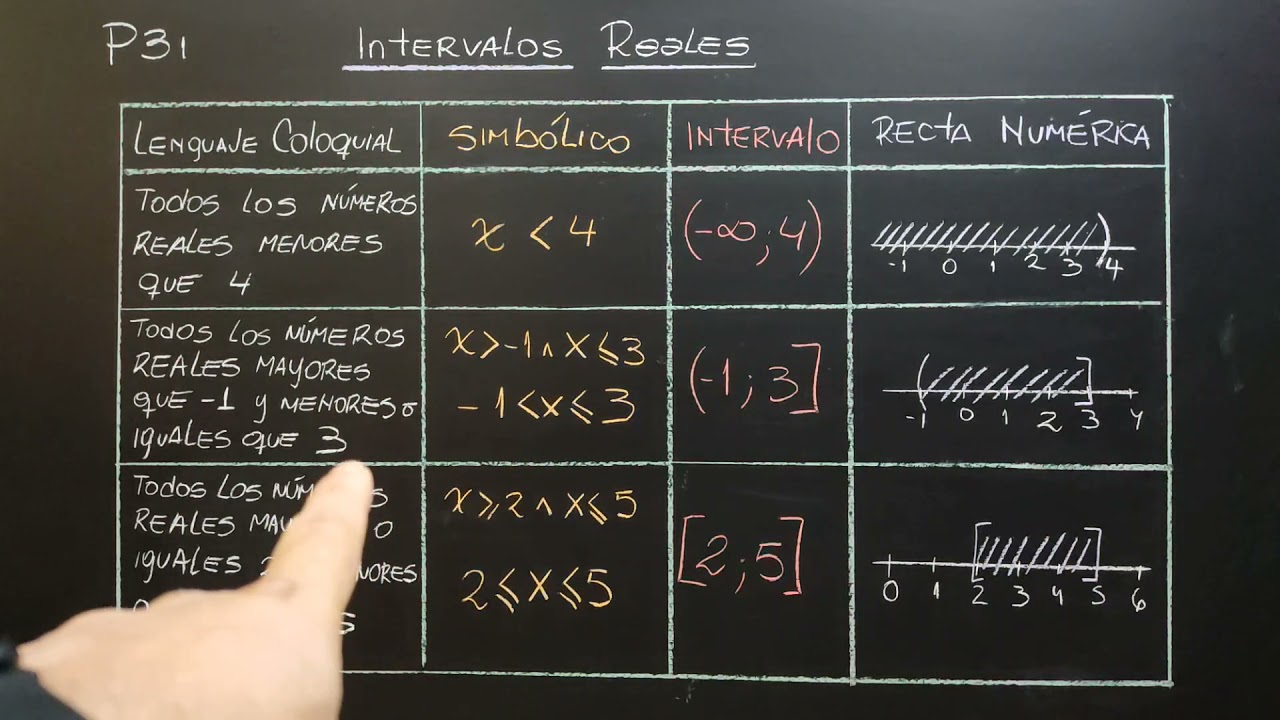 P31 INTERVALOS REALES
LENGUAJE COLOQUIAL SIMBÓLICO INTERVALO RECTA NUMÉRICA
TODOS LOS NÚMEROS
REALES MENORES
QUE 4
x < 4
(-∞; 4)
-1 0 1 2 3 4
TODOS LOS NÚMEROS
REALES MAYORES
QUE -1 Y MENORES O
IGUALES QUE 3
x > -1 ∧ x ⩽ 3
-1 < x ⩽ 3
(-1; 3]
-1 0 1 2 3 4
TODOS LOS
REALES O
IGUALES
x ⩾ 2 ∧ x ⩽ 5
2 ⩽ x ⩽ 5
[2; 5]
0 1 2 3 4 5 6